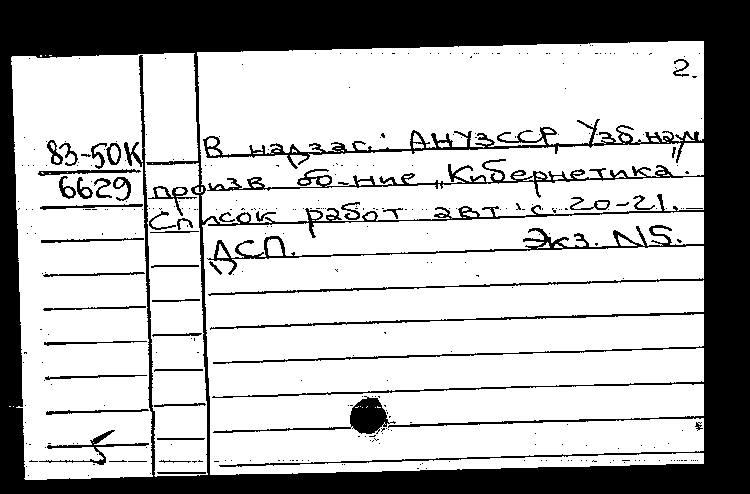 2.
83-50К В надзаг.: АНУзССР, Узб.науч.
6629 произв. об-ние „Кибернетика".
Список работ авт.: с. 20-21.
ДСП. Экз. N5.
5